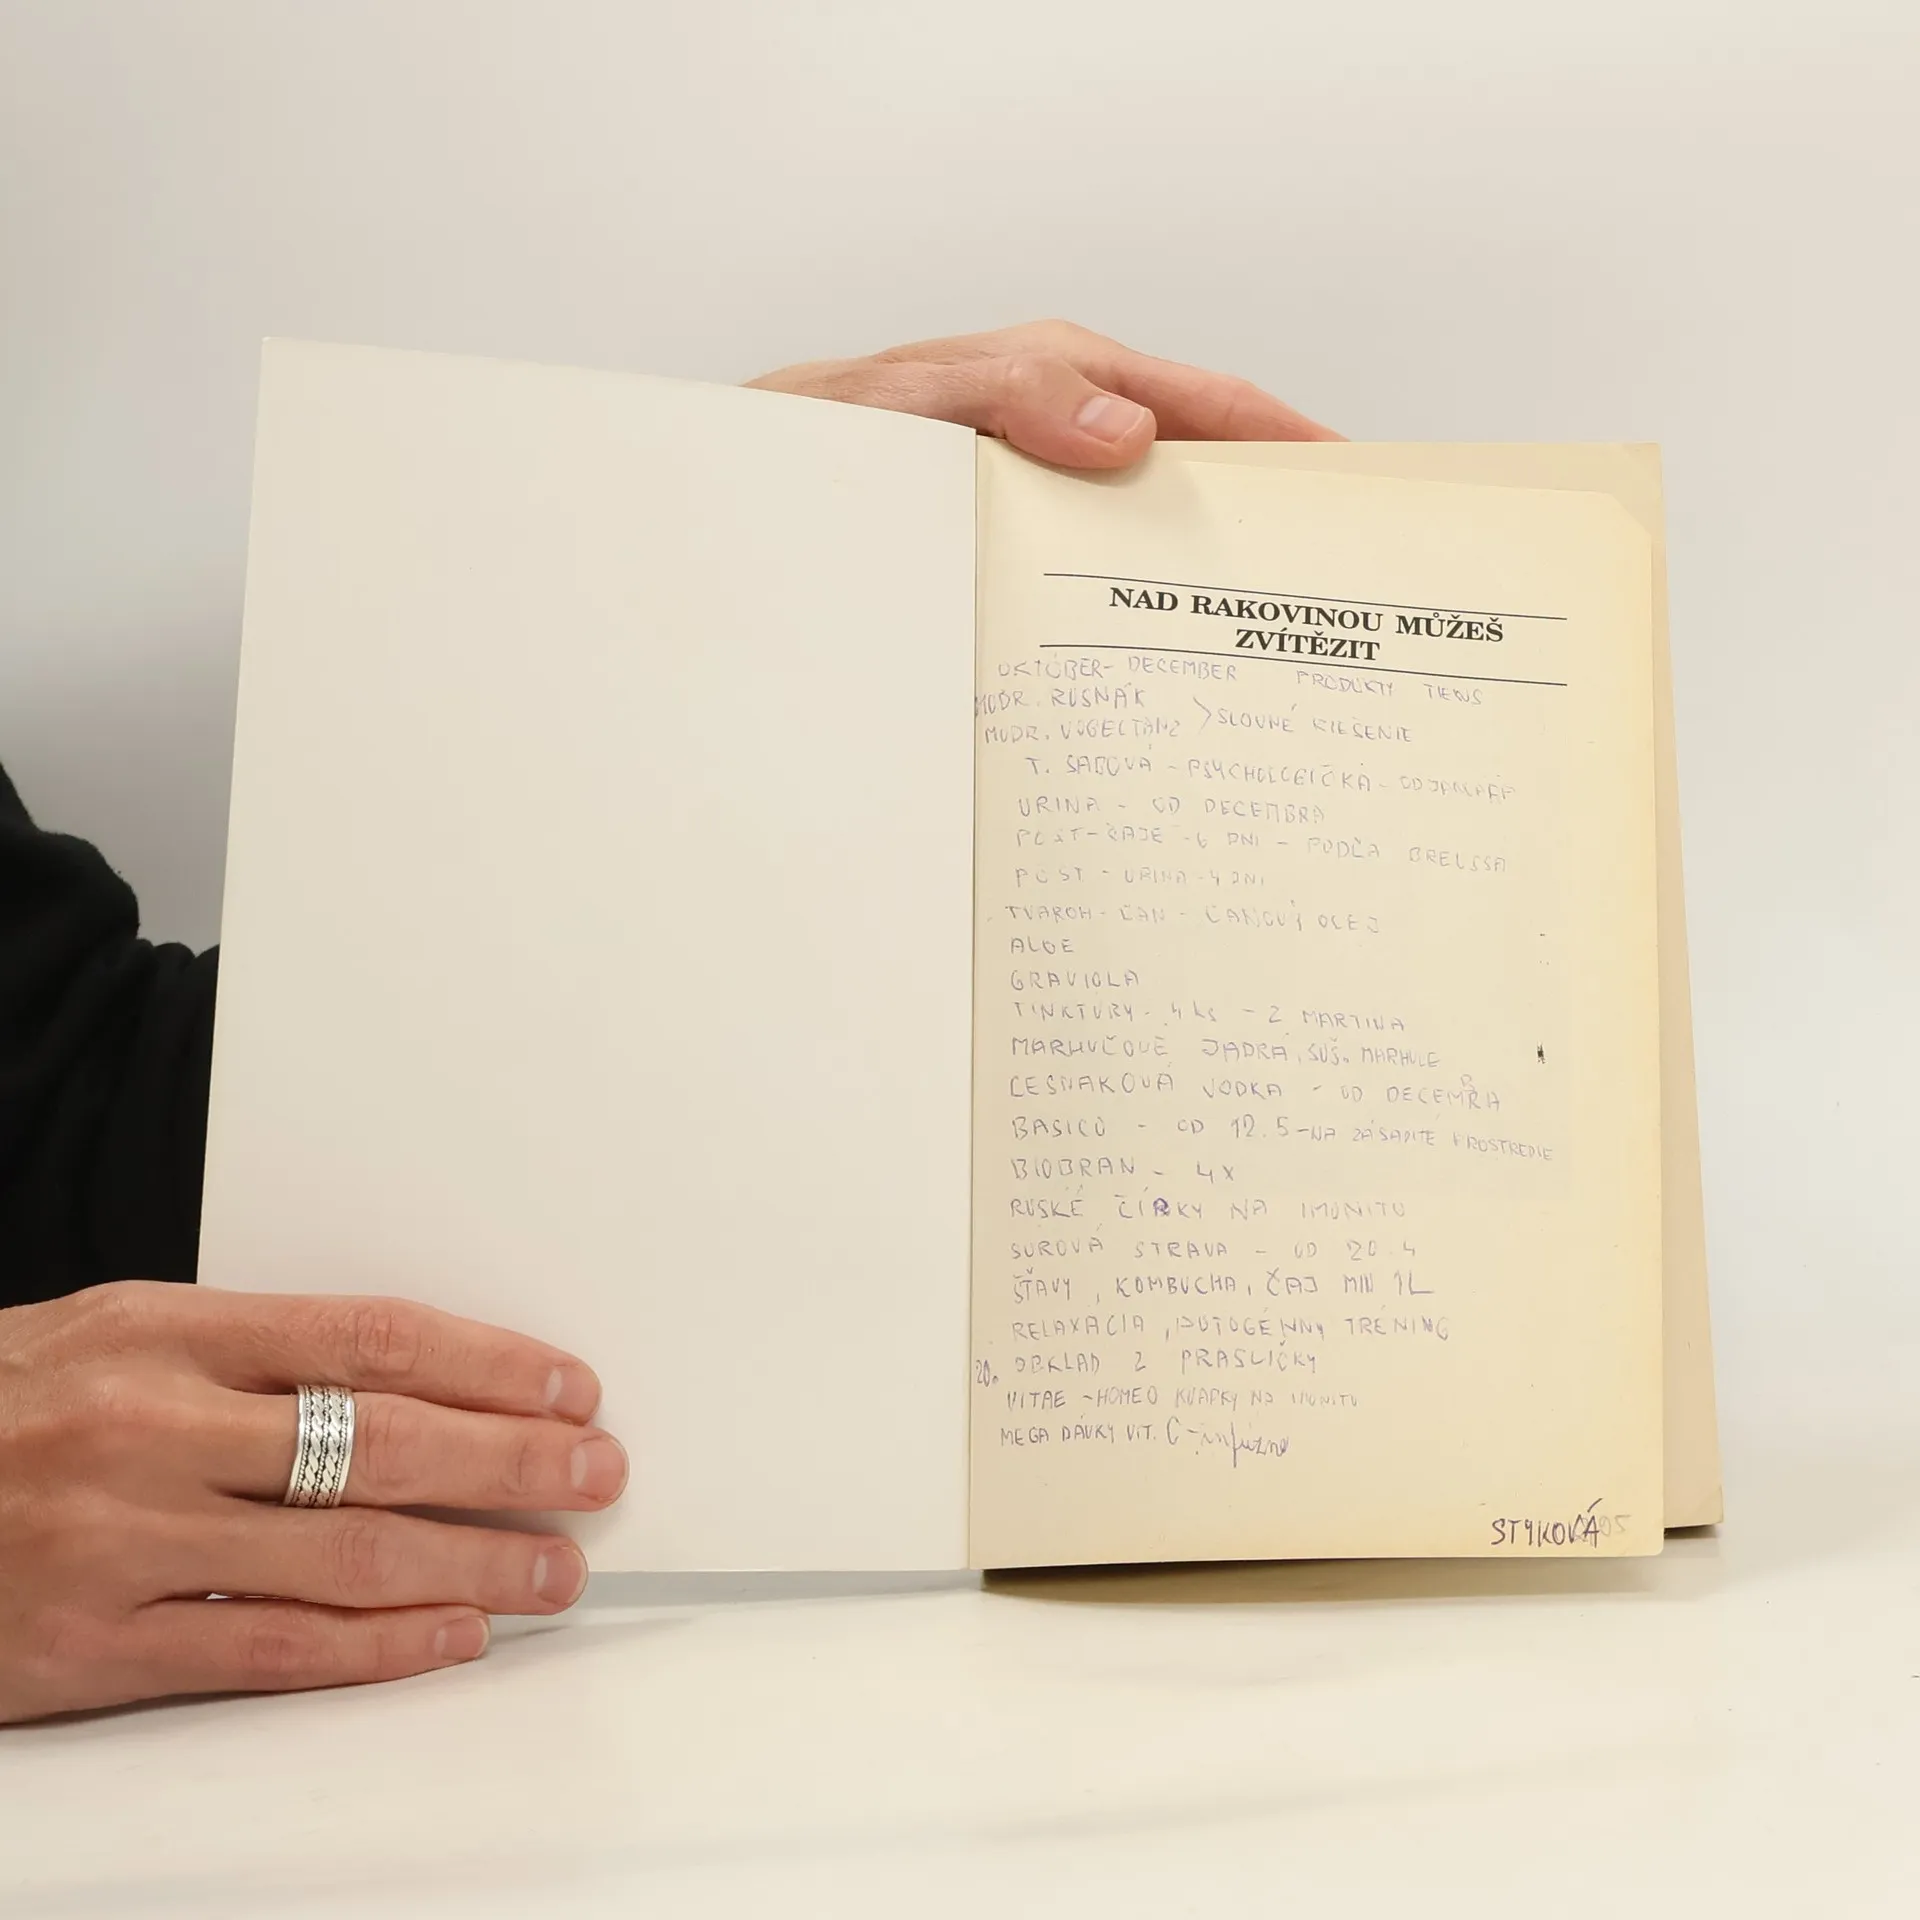 NAD RAKOVINOU MŮŽEŠ
ZVÍTĚZIT
OKTÓBER- DECEMBER PRODUKTY TIENS
MUDR. RUSNÁK
MUDR. VOGELTANZ > SLOVNÉ RIEŠENIE
T. SABOVÁ - PSYCHOLOGIČKA - OD
URINA - OD DECEMBRA
PÔST - ČAJE - 6 DNI - PODĽA BREUSSA
PÔST - URINA - 4 DNI
TVAROH - ĽAN - ĽANOVÝ OLEJ
ALOE
GRAVIOLA
TINKTÚRY - 4 ks - Z MARTINA
MARHUĽOVÉ JADRÁ, SUŠ. MARHULE
CESNAKOVÁ VODKA - OD DECEMBRA
BASICO - OD 12.5 - NA ZÁSADITÉ PROSTREDIE
BIOBRAN - 4X
RUSKÉ ČÍRKY NA IMUNITU
SUROVÁ STRAVA - OD 20.4
ŠŤAVY, KOMBUCHA, ČAJ MIN 1L
RELAXÁCIA, AUTOGÉNNY TRÉNING
20. OBKLAD Z PRASLIČKY
VITAE - HOMEO KVAPKY NA IMUNITU
MEGA DÁVKY VIT. C - infúzne
STYKOVÁ